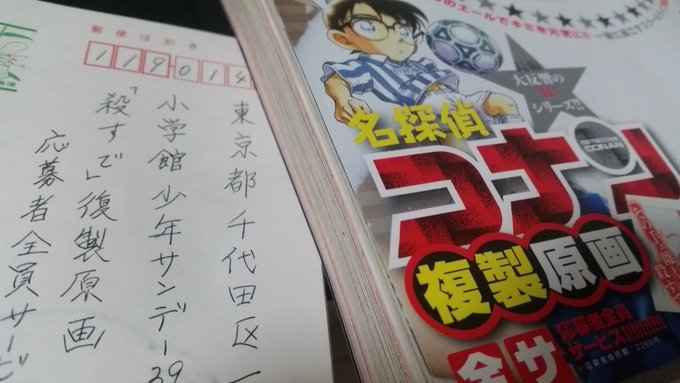 郵便はがき
119014
東京都千代田区一
小学館少年サンデー39
「殺すぞ」復製原画
応募者全員サービ
のエールでキミを元気に!!
大反響の
シリーズ!!
名探偵
コナン
DETECTIVE CONAN
複製原画
応募者全員
サービス!!!!!!!!
全サ